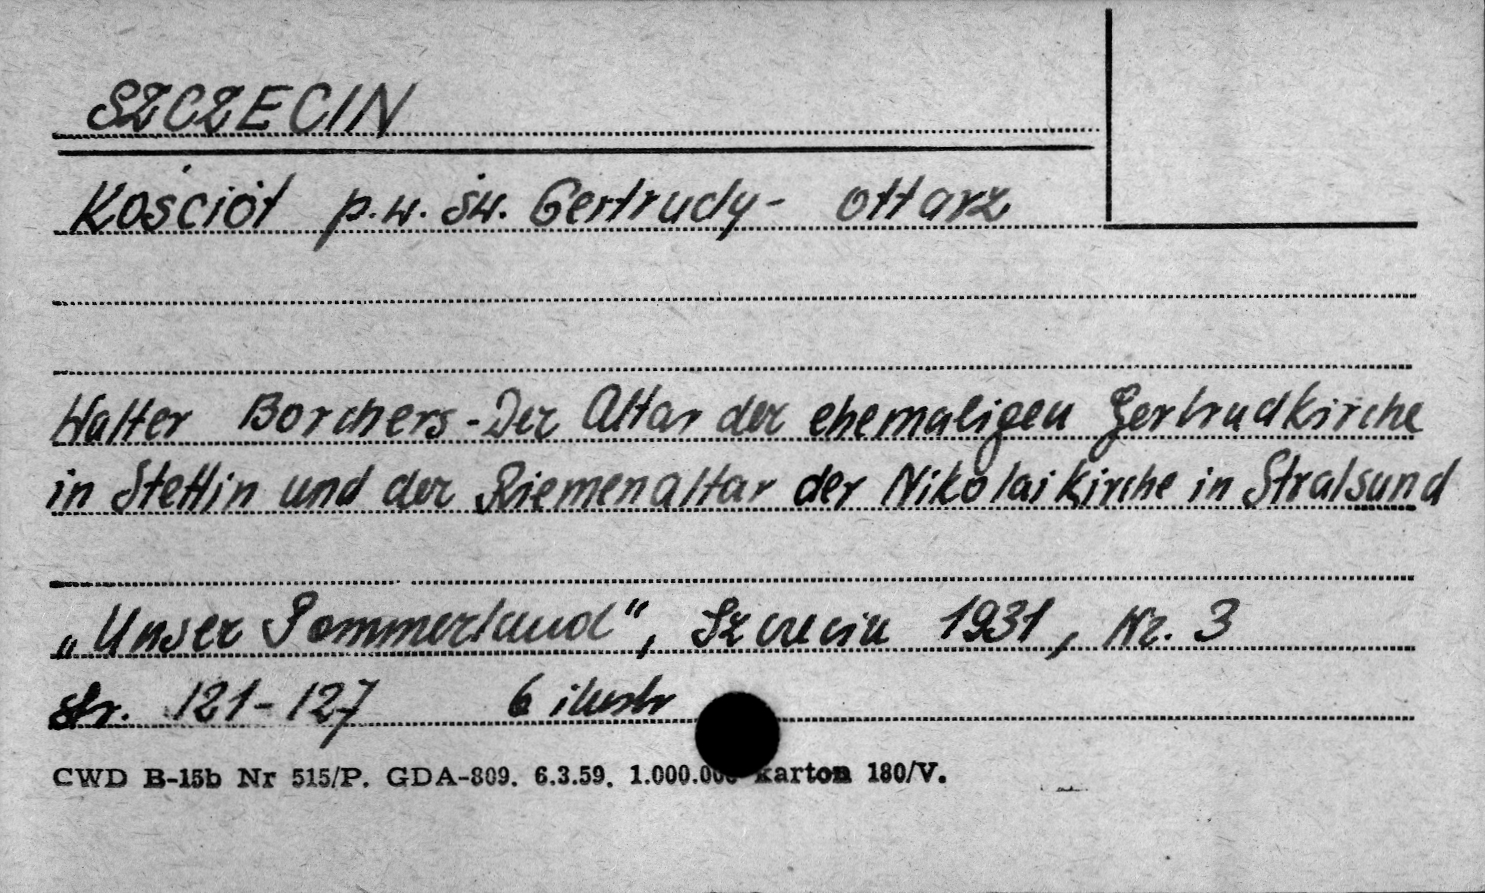 SZCZECIN
Kościół p.w. św. Gertrudy - ołtarz
Walter Borchers - Der Altar der ehemaligen Gertrudkirche
in Stettin und der Riemenaltar der Nikolaikirche in Stralsund
„Unser Pommerland", Szczecin 1931, Nr. 3
str. 121-127 6 ilustr
CWD B-15b Nr 515/P. GDA-809. 6.3.59. 1.000.000 karton 180/V.